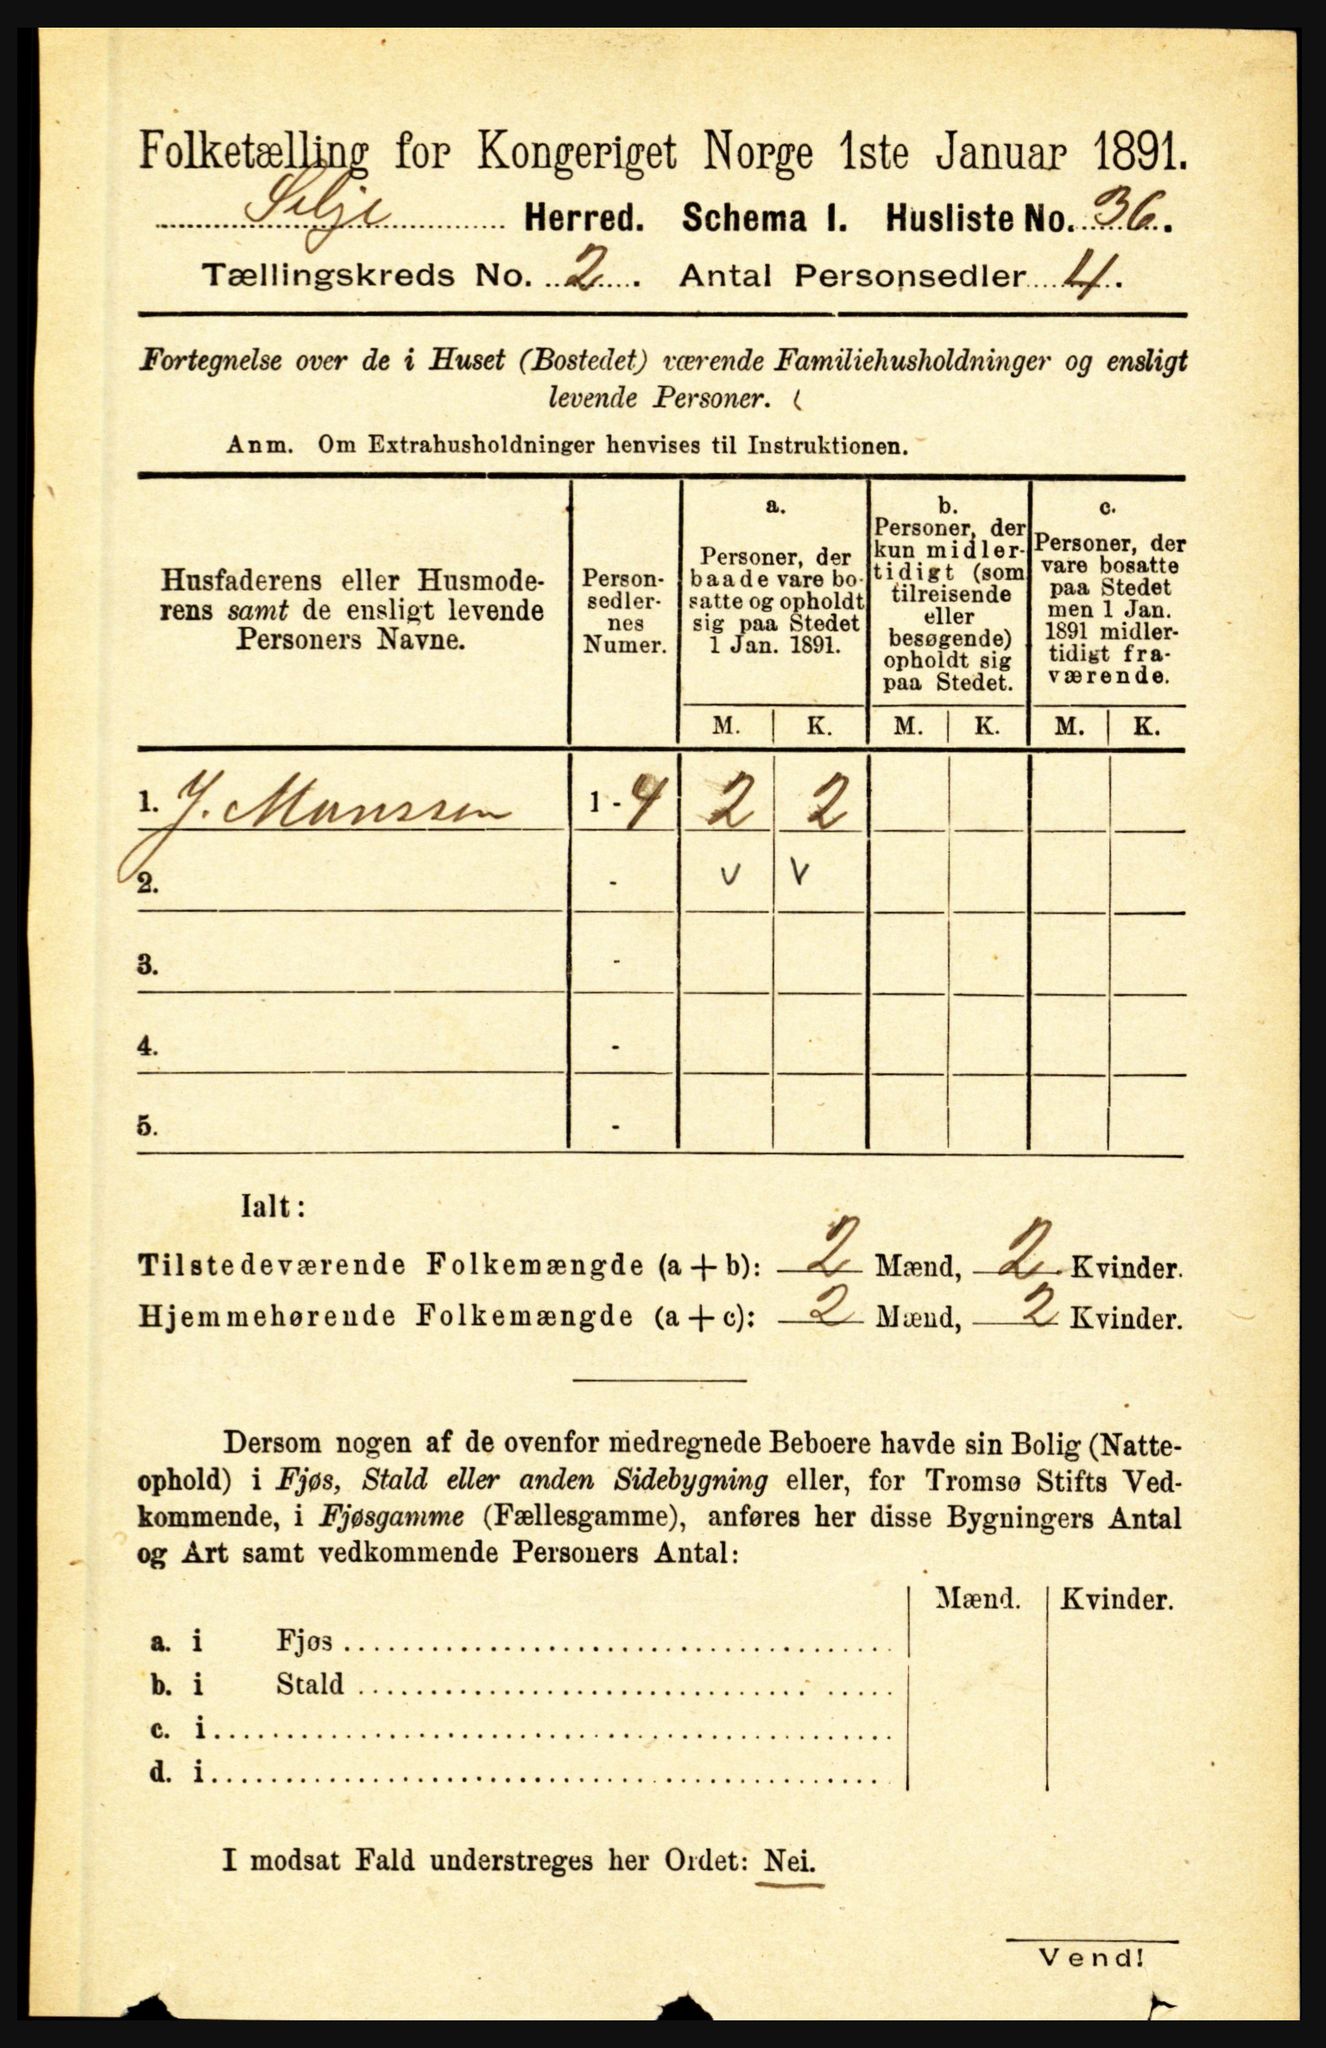 Folketælling for Kongeriget Norge 1ste Januar 1891.
Selje Herred. Schema I. Husliste No. 36.
Tællingskreds No. 2. Antal Personsedler 4.
Fortegnelse over de i Huset (Bostedet) værende Familiehusholdninger og ensligt
levende Personer. (
Anm. Om Extrahusholdninger henvises til Instruktionen.
Husfaderens eller Husmode-
rens samt de ensligt levende
Personers Navne.
Person-
sedler-
nes
Numer.
a.
Personer, der
baade vare bo-
satte og opholdt
sig paa Stedet
1 Jan. 1891.
b.
Personer, der
kun midler-
tidigt (som
tilreisende
eller
besøgende)
opholdt sig
paa Stedet.
c.
Personer, der
vare bosatte
paa Stedet
men 1 Jan.
1891 midler-
tidigt fra-
værende.
M. K. M. K. M. K.
1. J. Monssen 1 - 4 2 2
2. - v v
3. -
4. -
5. -
Ialt:
Tilstedeværende Folkemængde (a + b): 2 Mænd, 2 Kvinder.
Hjemmehørende Folkemængde (a + c): 2 Mænd, 2 Kvinder.
Dersom nogen af de ovenfor medregnede Beboere havde sin Bolig (Natte-
ophold) i Fjøs, Stald eller anden Sidebygning eller, for Tromsø Stifts Ved-
kommende, i Fjøsgamme (Fællesgamme), anføres her disse Bygningers Antal
og Art samt vedkommende Personers Antal:
Mænd. Kvinder.
a. i Fjøs
b. i Stald
c. i
d. i
I modsat Fald understreges her Ordet: Nei.
Vend!